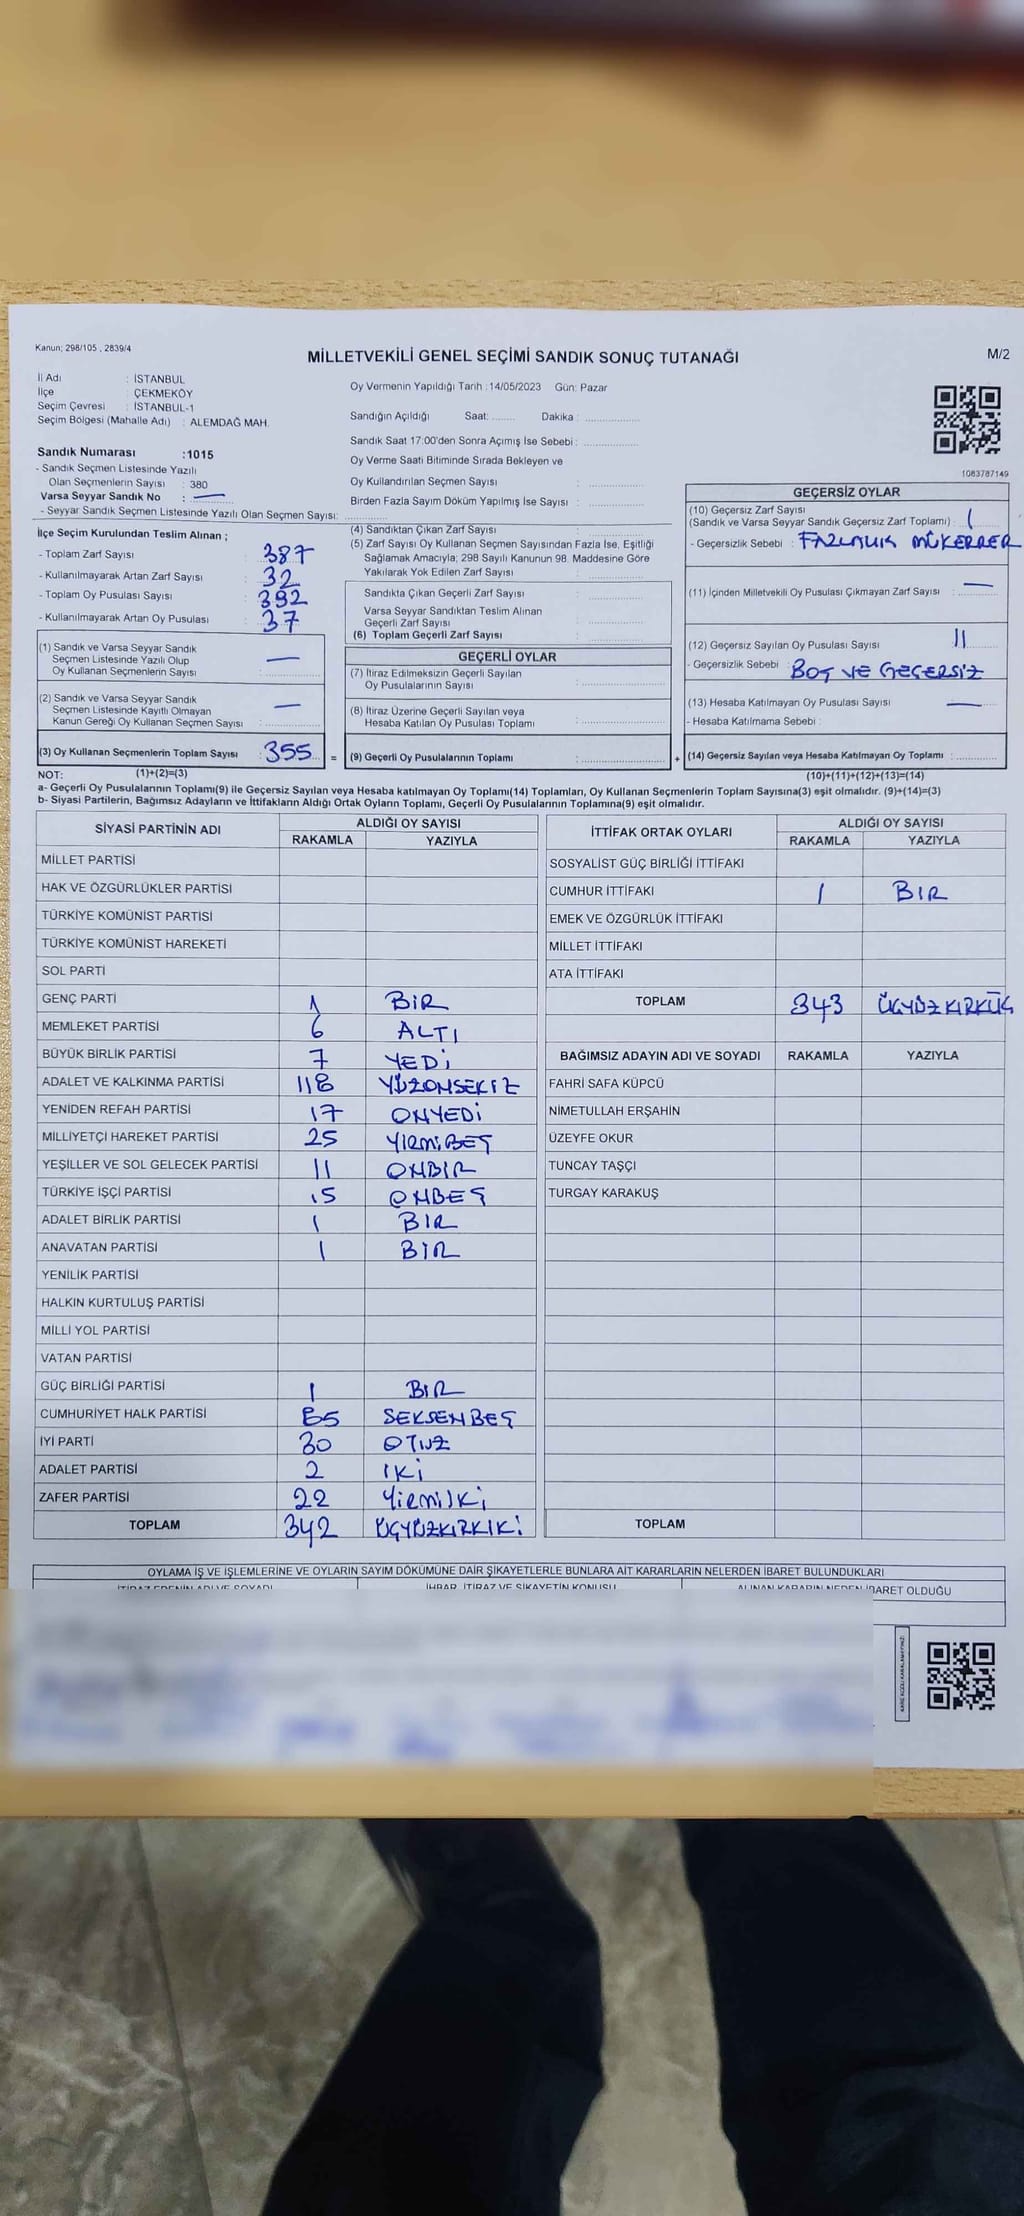 Kanun; 298/105 , 2839/4
MİLLETVEKİLİ GENEL SEÇİMİ SANDIK SONUÇ TUTANAĞI
M/2
İl Adı : İSTANBUL
İlçe : ÇEKMEKÖY
Seçim Çevresi : İSTANBUL-1
Seçim Bölgesi (Mahalle Adı) : ALEMDAĞ MAH.
Oy Vermenin Yapıldığı Tarih : 14/05/2023 Gün: Pazar
Sandığın Açıldığı Saat: ........ Dakika : ................
Sandık Saat 17:00'den Sonra Açımış İse Sebebi : ................
Oy Verme Saati Bitiminde Sırada Bekleyen ve
Oy Kullandırılan Seçmen Sayısı : ................
Birden Fazla Sayım Döküm Yapılmış İse Sayısı : ................
1083787149
Sandık Numarası :1015
- Sandık Seçmen Listesinde Yazılı
Olan Seçmenlerin Sayısı : 380
Varsa Seyyar Sandık No : —
- Seyyar Sandık Seçmen Listesinde Yazılı Olan Seçmen Sayısı: ................
İlçe Seçim Kurulundan Teslim Alınan ;
- Toplam Zarf Sayısı : 387
- Kullanılmayarak Artan Zarf Sayısı : 32
- Toplam Oy Pusulası Sayısı : 392
- Kullanılmayarak Artan Oy Pusulası : 37
(1) Sandık ve Varsa Seyyar Sandık
Seçmen Listesinde Yazılı Olup
Oy Kullanan Seçmenlerin Sayısı : —
(2) Sandık ve Varsa Seyyar Sandık
Seçmen Listesinde Kayıtlı Olmayan
Kanun Gereği Oy Kullanan Seçmen Sayısı : —
(3) Oy Kullanan Seçmenlerin Toplam Sayısı : 355 =
(4) Sandıktan Çıkan Zarf Sayısı : ................
(5) Zarf Sayısı Oy Kullanan Seçmen Sayısından Fazla İse, Eşitliği
Sağlamak Amacıyla; 298 Sayılı Kanunun 98. Maddesine Göre
Yakılarak Yok Edilen Zarf Sayısı : ................
Sandıkta Çıkan Geçerli Zarf Sayısı : ................
Varsa Seyyar Sandıktan Teslim Alınan
Geçerli Zarf Sayısı : ................
(6) Toplam Geçerli Zarf Sayısı : ................
GEÇERLİ OYLAR
(7) İtiraz Edilmeksizin Geçerli Sayılan
Oy Pusulalarının Sayısı : ................
(8) İtiraz Üzerine Geçerli Sayılan veya
Hesaba Katılan Oy Pusulası Toplamı : ................
(9) Geçerli Oy Pusulalarının Toplamı : ................ +
GEÇERSİZ OYLAR
(10) Geçersiz Zarf Sayısı
(Sandık ve Varsa Seyyar Sandık Geçersiz Zarf Toplamı) : 1
- Geçersizlik Sebebi : FAZLALIK MÜKERRER
(11) İçinden Milletvekili Oy Pusulası Çıkmayan Zarf Sayısı : —
(12) Geçersiz Sayılan Oy Pusulası Sayısı : 11
- Geçersizlik Sebebi : BOŞ VE GEÇERSİZ
(13) Hesaba Katılmayan Oy Pusulası Sayısı : —
- Hesaba Katılmama Sebebi :
(14) Geçersiz Sayılan veya Hesaba Katılmayan Oy Toplamı : ................
NOT: (1)+(2)=(3)
(10)+(11)+(12)+(13)=(14)
a- Geçerli Oy Pusulalarının Toplamı(9) ile Geçersiz Sayılan veya Hesaba katılmayan Oy Toplamı(14) Toplamları, Oy Kullanan Seçmenlerin Toplam Sayısına(3) eşit olmalıdır. (9)+(14)=(3)
b- Siyasi Partilerin, Bağımsız Adayların ve İttifakların Aldığı Ortak Oyların Toplamı, Geçerli Oy Pusulalarının Toplamına(9) eşit olmalıdır.
SİYASİ PARTİNİN ADI ALDIĞI OY SAYISI
RAKAMLA YAZIYLA
MİLLET PARTİSİ
HAK VE ÖZGÜRLÜKLER PARTİSİ
TÜRKİYE KOMÜNİST PARTİSİ
TÜRKİYE KOMÜNİST HAREKETİ
SOL PARTİ
GENÇ PARTİ 1 BİR
MEMLEKET PARTİSİ 6 ALTI
BÜYÜK BİRLİK PARTİSİ 7 YEDİ
ADALET VE KALKINMA PARTİSİ 118 YÜZONSEKİZ
YENİDEN REFAH PARTİSİ 17 ONYEDİ
MİLLİYETÇİ HAREKET PARTİSİ 25 YİRMİBEŞ
YEŞİLLER VE SOL GELECEK PARTİSİ 11 ONBİR
TÜRKİYE İŞÇİ PARTİSİ 15 ONBEŞ
ADALET BİRLİK PARTİSİ 1 BİR
ANAVATAN PARTİSİ 1 BİR
YENİLİK PARTİSİ
HALKIN KURTULUŞ PARTİSİ
MİLLİ YOL PARTİSİ
VATAN PARTİSİ
GÜÇ BİRLİĞİ PARTİSİ 1 BİR
CUMHURİYET HALK PARTİSİ 85 SEKSENBEŞ
İYİ PARTİ 30 OTUZ
ADALET PARTİSİ 2 İKİ
ZAFER PARTİSİ 22 YİRMİİKİ
TOPLAM 342 ÜÇYÜZKIRKİKİ
İTTİFAK ORTAK OYLARI ALDIĞI OY SAYISI
RAKAMLA YAZIYLA
SOSYALİST GÜÇ BİRLİĞİ İTTİFAKI
CUMHUR İTTİFAKI 1 BİR
EMEK VE ÖZGÜRLÜK İTTİFAKI
MİLLET İTTİFAKI
ATA İTTİFAKI
TOPLAM 343 ÜÇYÜZKIRKÜÇ
BAĞIMSIZ ADAYIN ADI VE SOYADI RAKAMLA YAZIYLA
FAHRİ SAFA KÜPCÜ
NİMETULLAH ERŞAHİN
ÜZEYFE OKUR
TUNCAY TAŞÇI
TURGAY KARAKUŞ
TOPLAM
OYLAMA İŞ VE İŞLEMLERİNE VE OYLARIN SAYIM DÖKÜMÜNE DAİR ŞİKAYETLERLE BUNLARA AİT KARARLARIN NELERDEN İBARET BULUNDUKLARI
İTİRAZ EDENİN ADI VE SOYADI İHBAR, İTİRAZ VE ŞİKAYETİN KONUSU ALINAN KARARIN NEDEN İBARET OLDUĞU